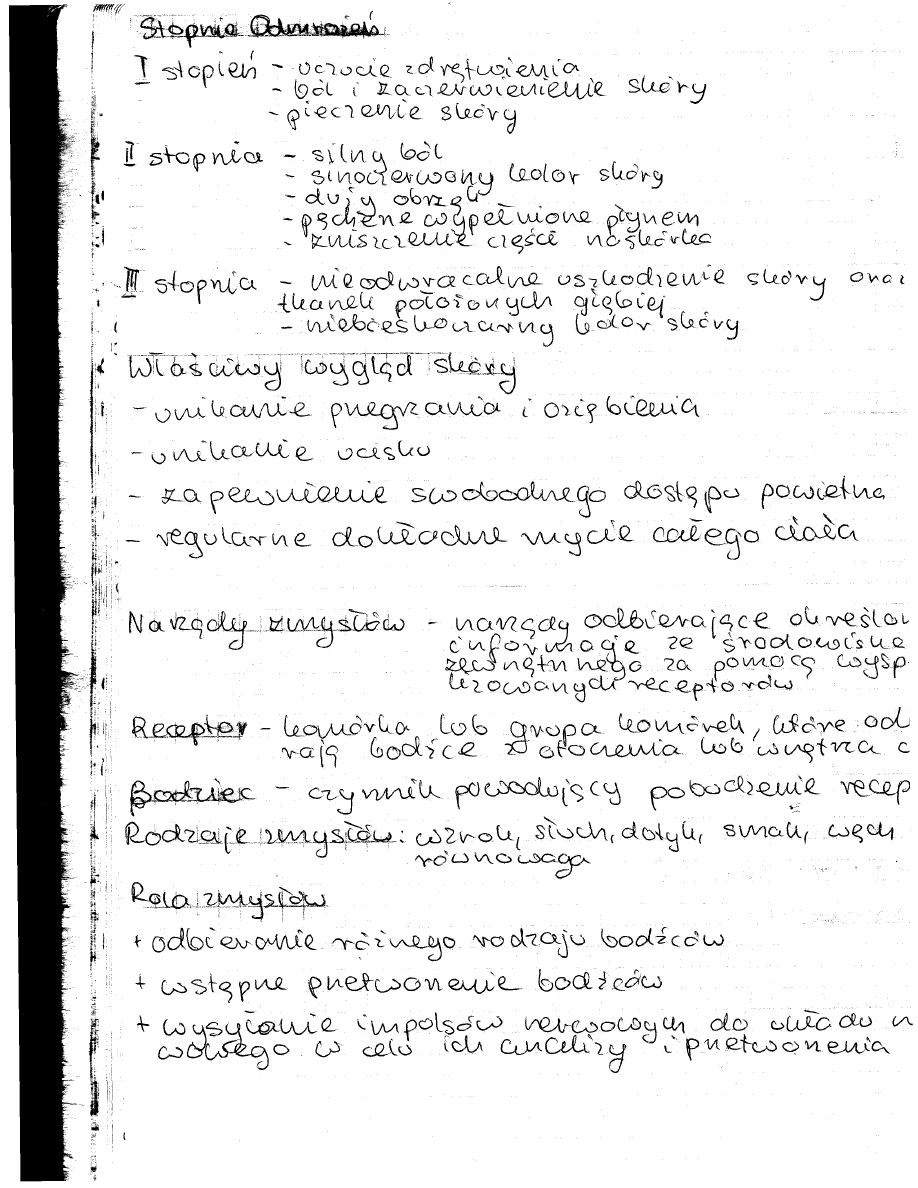 Stopnie Odmrożeń
I stopień - uczucie zdrętwienia
- ból i zaczerwienienie skóry
- pieczenie skóry
II stopnia - silny ból
- sinoczerwony kolor skóry
- duży obrzęk
- pęcherze wypełnione płynem
- zniszczenie części naskórka
III stopnia - nieodwracalne uszkodzenie skóry oraz
tkanek położonych głębiej
- niebieskoczarny kolor skóry
Właściwy wygląd skóry
- unikanie przegrzania i oziębienia
- unikanie ucisku
- zapewnienie swobodnego dostępu powietrza
- regularne dokładne mycie całego ciała
Narządy zmysłów - narządy odbierające określon
informacje ze środowiska
zewnętrznego za pomocą wysp
lizowanych receptorów
Receptor - komórka lub grupa komórek, które od
rają bodźce z otoczenia lub wnętrza c
Bodziec - czynnik powodujący pobudzenie recep
Rodzaje zmysłów: wzrok, słuch, dotyk, smak, węch
równowaga
Rola zmysłów
+ odbieranie różnego rodzaju bodźców
+ wstępne przetworzenie bodźców
+ wysyłanie impulsów nerwowych do układu n
wowego w celu ich analizy i przetworzenia